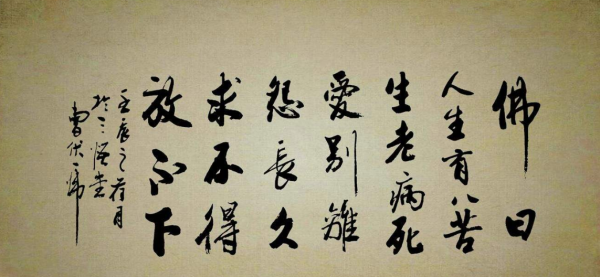 佛曰
人生有八苦
生老病死
愛別離
怨長久
求不得
放不下
壬辰之荷月
於三悟堂